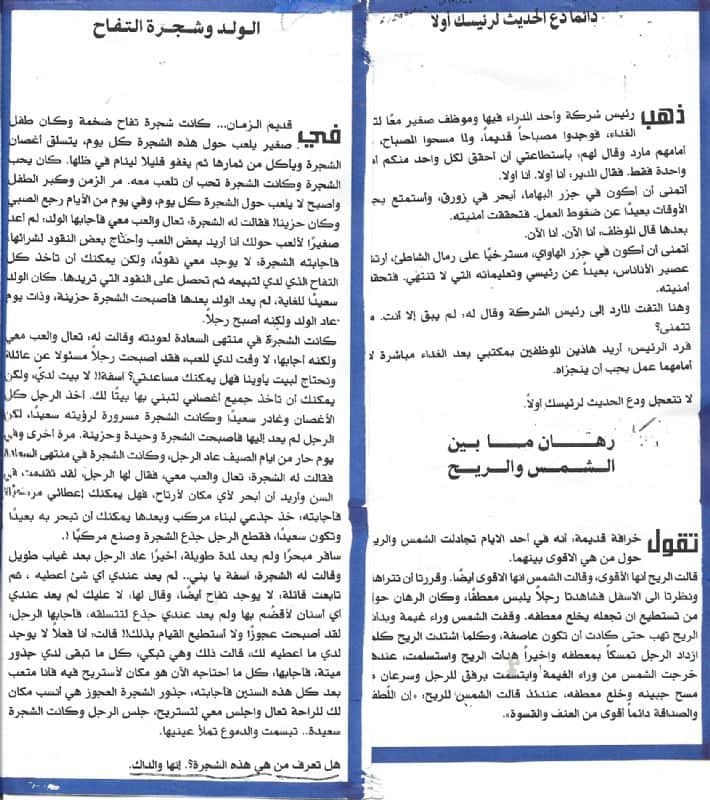 دائماً دع الحديث لرئيسك أولا
ذهب رئيس شركة وأحد المدراء فيها وموظف صغير معًا
الغداء، فوجدوا مصباحاً قديماً، ولما مسحوا المصباح،
أمامهم مارد وقال لهم: بأستطاعتي أن احقق لكل واحد منكم
واحدة فقط. فقال المدير: أنا أولا. أنا اولا.
أتمنى أن أكون في جزر البهاما، أبحر في زورق، وأستمتع
الأوقات بعيدًا عن ضغوط العمل. فتحققت أمنيته.
بعدها قال الموظف: أنا الآن. أنا الآن.
أتمنى أن أكون في جزر الهاواي، مسترخيًا على رمال الشاطئ،
عصير الأناناس، بعيداً عن رئيسي وتعليماته التي لا تنتهي.
أمنيته.
وهنا التفت المارد إلى رئيس الشركة وقال له: لم يبق إلا أنت.
تتمنى؟
فرد الرئيس: أريد هاذين الموظفين بمكتبي بعد الغداء مباشرة
أمامهما عمل يجب أن ينجزاه.
لا تتعجل ودع الحديث لرئيسك اولاً.
رهان ما بين
الشمس والريح
تقول خرافة قديمة، أنه في أحد الايام تجادلت الشمس والريح
حول من هي الاقوى بينهما.
قالت الريح انها الأقوى، وقالت الشمس انها الاقوى أيضًا. وقررتا أن
ونظرتا الى الاسفل فشاهدتا رجلاً يلبس معطفًا، وكان الرهان
من تستطيع ان تجعله يخلع معطفه. وقفت الشمس وراء غيمة
الريح تهب حتى كادت أن تكون عاصفة، وكلما اشتدت الريح
ازداد الرجل تمسكًا بمعطفه واخيراً هدأت الريح واستسلمت،
خرجت الشمس من وراء الغيمة وابتسمت برفق للرجل وسرعان
مسح جبينه وخلع معطفه، عندئذ قالت الشمس للريح: «إن اللطف
والصداقة دائماً أقوى من العنف والقسوة».
الولد وشجرة التفاح
في قديم الزمان... كانت شجرة تفاح ضخمة وكان طفل
صغير يلعب حول هذه الشجرة كل يوم، يتسلق أغصان
الشجرة ويأكل من ثمارها ثم يغفو قليلا لينام في ظلها. كان يحب
الشجرة وكانت الشجرة تحب أن تلعب معه. مر الزمن وكبر الطفل
وأصبح لا يلعب حول الشجرة كل يوم، وفي يوم من الأيام رجع الصبي
وكان حزينا! فقالت له الشجرة: تعال والعب معي فأجابها الولد: لم أعد
صغيرًا لألعب حولك انا أريد بعض اللعب وأحتاج بعض النقود لشرائها،
فأجابته الشجرة: لا يوجد معي نقودًا، ولكن يمكنك أن تأخذ كل
التفاح الذي لدي لتبيعه ثم تحصل على النقود التي تريدها. كان الولد
سعيدًا للغاية، لم يعد الولد بعدها فأصبحت الشجرة حزينة، وذات يوم
عاد الولد ولكنه أصبح رجلاً.
كانت الشجرة في منتهى السعادة لعودته وقالت له: تعال والعب معي
ولكنه أجابها: لا وقت لدي للعب، فقد أصبحت رجلاً مسئولا عن عائلة
ونحتاج لبيت يأوينا فهل يمكنك مساعدتي؟ آسفة!! لا بيت لديّ، ولكن
يمكنك أن تأخذ جميع أغصاني لتبني بها بيتًا لك. أخذ الرجل كل
الأغصان وغادر سعيدًا وكانت الشجرة مسرورة لرؤيته سعيدًا، لكن
الرجل لم يعد إليها فأصبحت الشجرة وحيدة وحزينة. مرة أخرى وفي
يوم حار من ايام الصيف عاد الرجل، وكانت الشجرة في منتهى
فقالت له الشجرة: تعال والعب معي، فقال لها الرجل: لقد تقدمت في
السن وأريد أن أبحر لأي مكان لأرتاح، فهل يمكنك إعطائي
فأجابته: خذ جذعي لبناء مركب وبعدها يمكنك أن تبحر به بعيدًا
وتكون سعيدًا، فقطع الرجل جذع الشجرة وصنع مركبًا !.
سافر مبحرًا ولم يعد لمدة طويلة، أخيرًا عاد الرجل بعد غياب طويل
وقالت له الشجرة: آسفة يا بني.. لم يعد عندي أي شئ أعطيه ، ثم
تابعت قائلة: لا يوجد تفاح أيضًا، وقال لها: لا عليك لم يعد عندي
أي أسنان لأقضم بها ولم يعد عندي جذع لتتسلقه، فأجابها الرجل:
لقد أصبحت عجوزًا ولا أستطيع القيام بذلك!! قالت: أنا فعلاً لا يوجد
لدي ما أعطيه لك، قالت ذلك وهي تبكي، كل ما تبقى لدي جذور
ميتة، فأجابها، كل ما أحتاجه الآن هو مكان لأستريح فيه فأنا متعب
بعد كل هذه السنين فأجابته، جذور الشجرة العجوز هي أنسب مكان
لك للراحة تعال واجلس معي لتستريح، جلس الرجل وكانت الشجرة
سعيدة.. تبسمت والدموع تملأ عينيها.
هل تعرف من هي هذه الشجرة؟. إنها والداك.